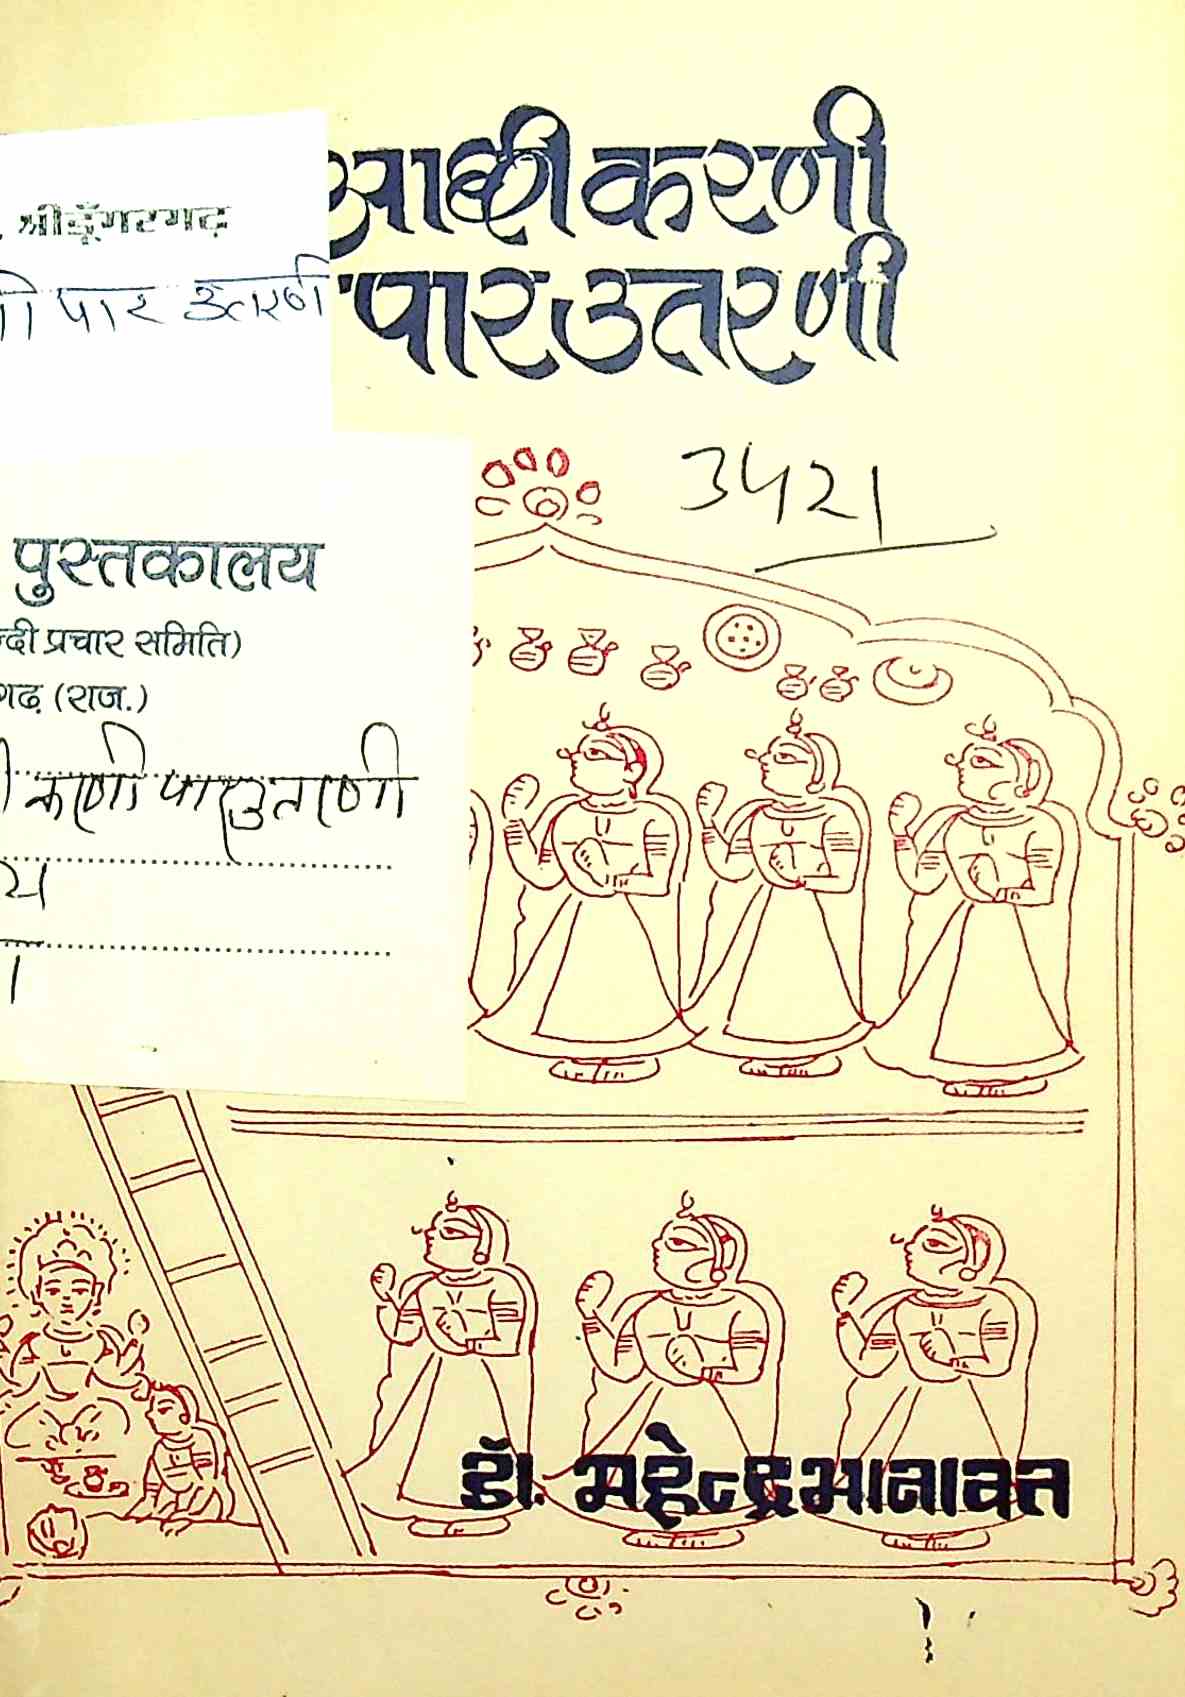 आछी करणी
पार उतरणी
श्रीडूँगरगढ़
पार उतरण
पुस्तकालय
न्दी प्रचार समिति)
गढ़ (राज.)
करणी पार उतरणी
डॉ. महेन्द्र भानावत